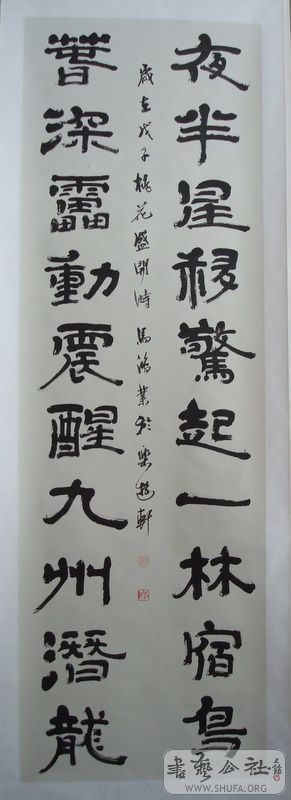 夜半星移驚起一林宿鳥
歲在戊子桃花盛開時馬鴻業於樂軒
萅深靁動震醒九州潛龍
書藝公社
WWW.SHUFA.ORG